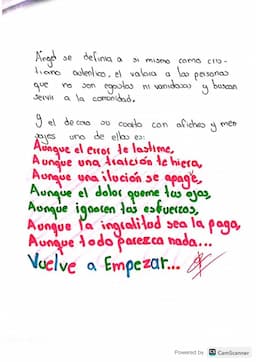 Angel se definia a si mismo como cris-
tiano autentico, el valora a las personas
que no son egoistas ni vanidosas y buscan
servir a la comunidad.
y el decoro su cuarto con afiches y men
sajes uno de ellos es:
Aunque el error te lastime,
Aunque una traición te hiera,
Aunque una ilución se apague,
Aunque el dolor queme tus ojos,
Aunque ignoren tus esfuerzos,
Aunque la ingratitud sea la paga,
Aunque todo parezca nada...
Vuelve a Empezar...
Powered by CS CamScanner